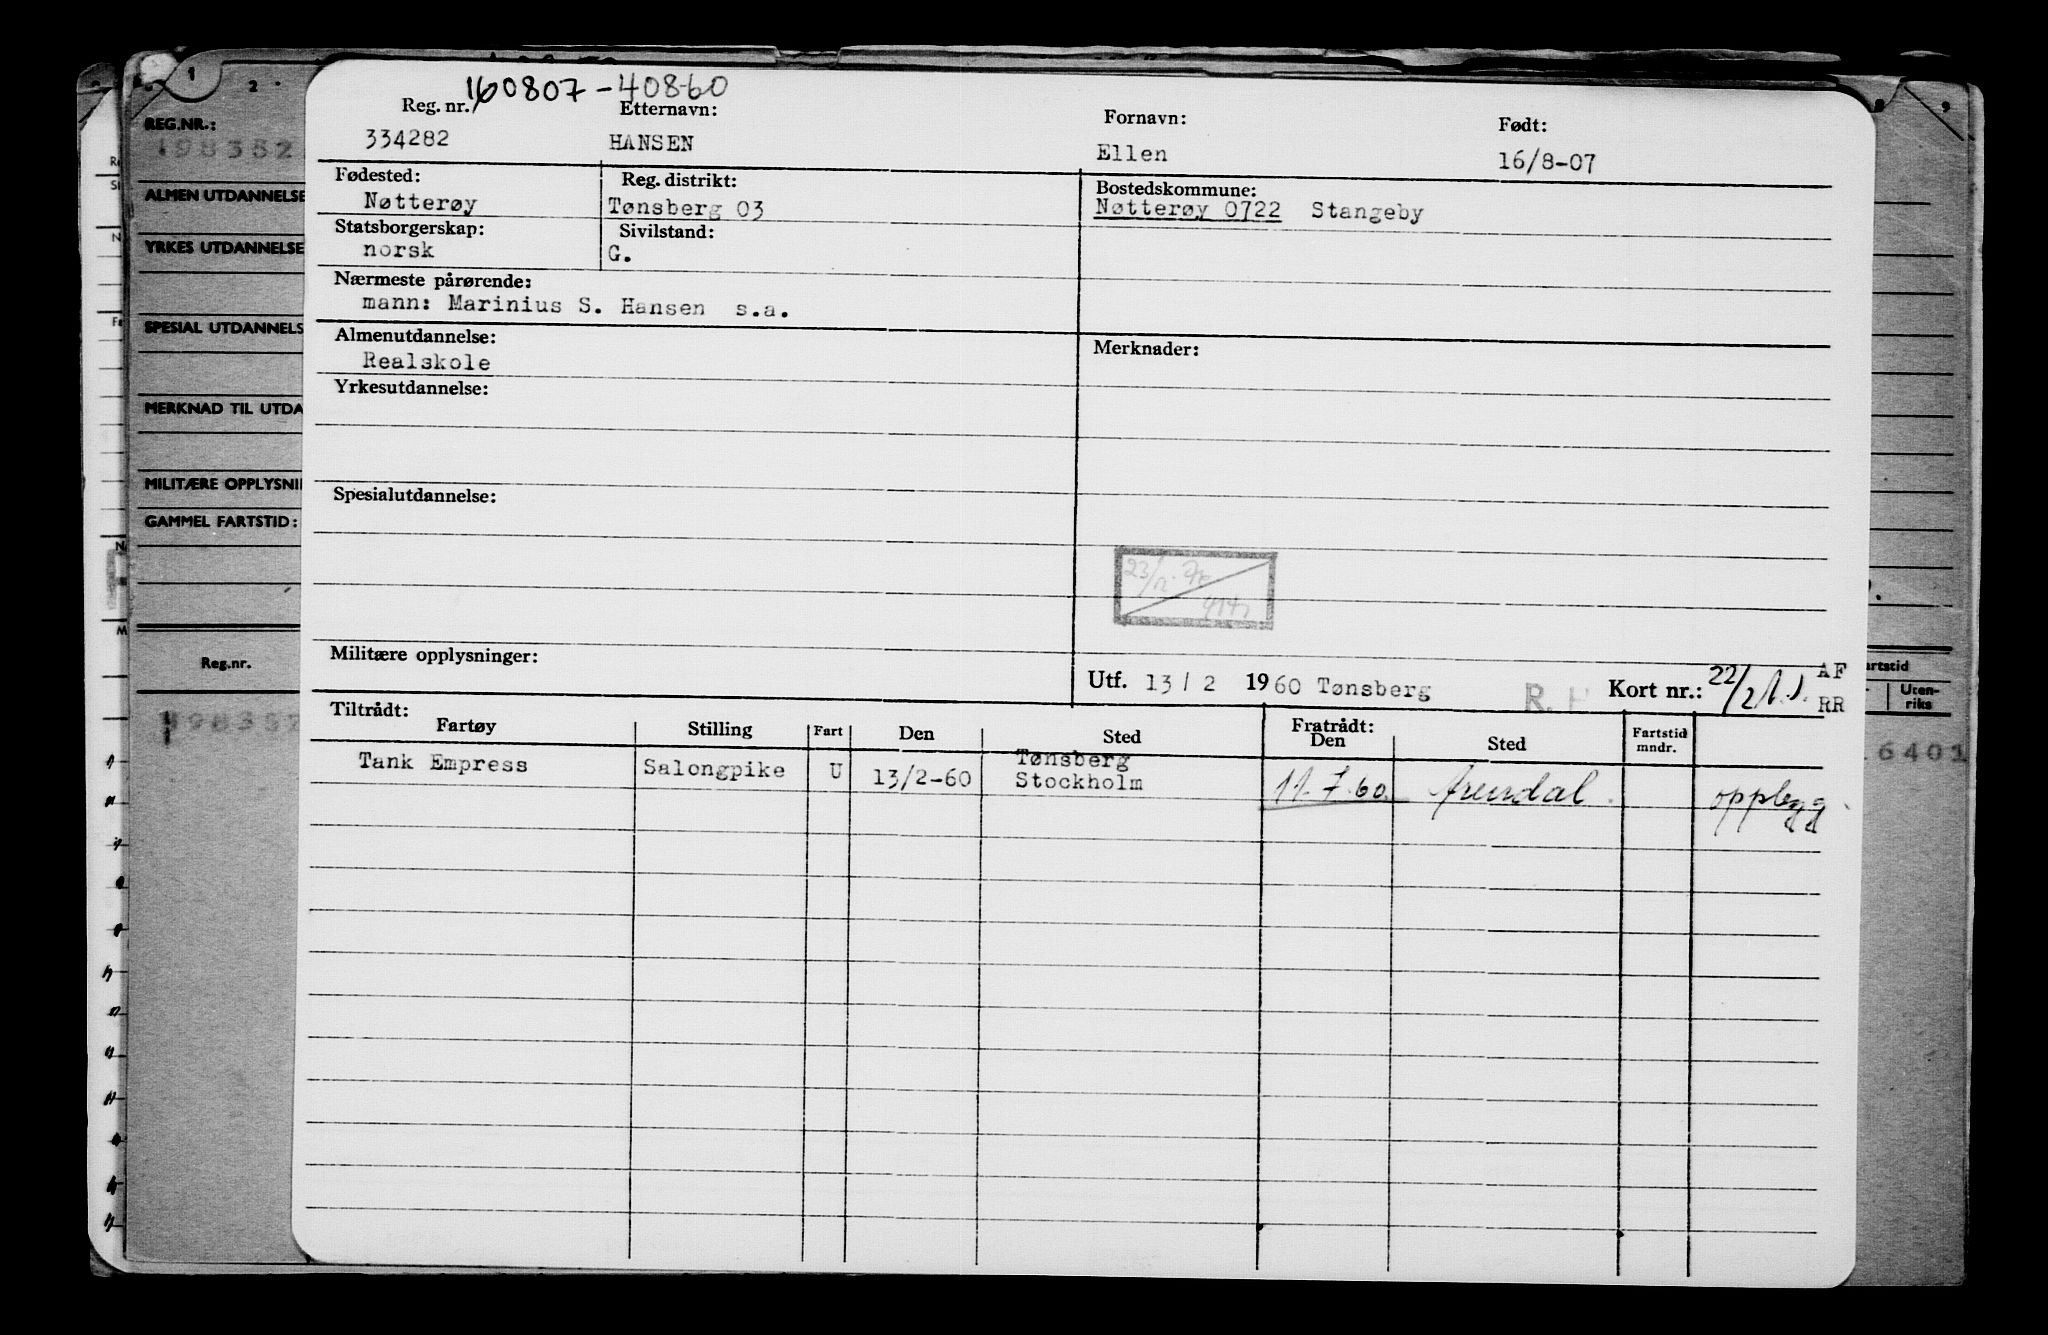 160807-40860
Reg. nr. Etternavn: Fornavn: Født:
334282 HANSEN Ellen 16/8-07
Fødested: Reg. distrikt: Bostedskommune:
Nøtterøy Tønsberg 03 Nøtterøy 0722 Stangeby
Statsborgerskap: Sivilstand:
norsk G.
Nærmeste pårørende:
mann: Marinius S. Hansen s.a.
Almenutdannelse: Merknader:
Realskole
Yrkesutdannelse:
Spesialutdannelse:
Militære opplysninger:
Utf. 13/2 1960 Tønsberg R.H Kort nr.: 22/2 AF
RR
Tiltrådt: Fratrådt:
Fartøy Stilling Fart Den Sted Den Sted Fartstid mndr.
Tank Empress Salongpike U 13/2-60 Tønsberg
Stockholm 11.7.60 Arendal opplegg
1 2 8 9
REG.NR.:
198352
ALMEN UTDANNELSE
YRKES UTDANNELSE
SPESIAL UTDANNELS
MERKNAD TIL UTDA
MILITÆRE OPPLYSNI
GAMMEL FARTSTID:
Reg.nr. artstid
Uten-
riks
6401